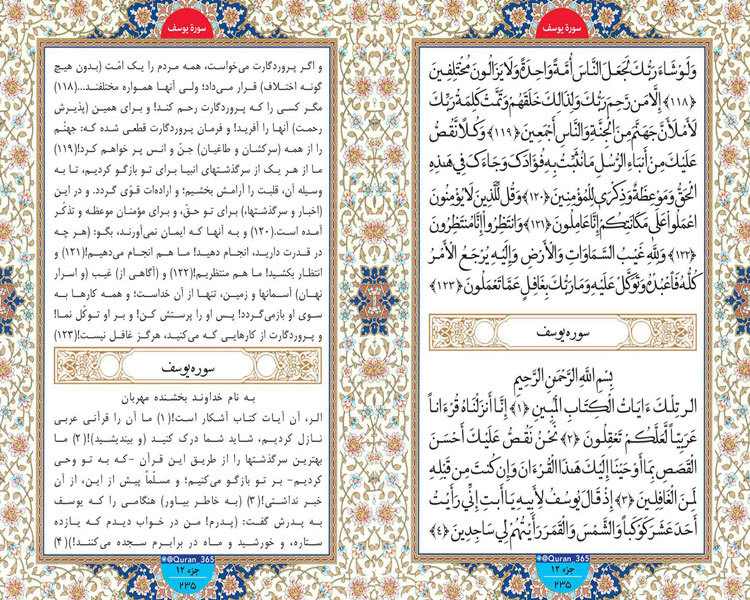 سورة یوسف
وَلَوْ شَاءَ رَبُّكَ لَجَعَلَ النَّاسَ أُمَّةً وَاحِدَةً وَلَا يَزَالُونَ مُخْتَلِفِينَ
﴿۱۱۸﴾ إِلَّا مَن رَّحِمَ رَبُّكَ وَلِذَٰلِكَ خَلَقَهُمْ وَتَمَّتْ كَلِمَةُ رَبِّكَ
لَأَمْلَأَنَّ جَهَنَّمَ مِنَ الْجِنَّةِ وَالنَّاسِ أَجْمَعِينَ ﴿۱۱۹﴾ وَكُلًّا نَّقُصُّ
عَلَيْكَ مِنْ أَنبَاءِ الرُّسُلِ مَا نُثَبِّتُ بِهِ فُؤَادَكَ وَجَاءَكَ فِي هَٰذِهِ
الْحَقُّ وَمَوْعِظَةٌ وَذِكْرَىٰ لِلْمُؤْمِنِينَ ﴿۱۲۰﴾ وَقُل لِّلَّذِينَ لَا يُؤْمِنُونَ
اعْمَلُوا عَلَىٰ مَكَانَتِكُمْ إِنَّا عَامِلُونَ ﴿۱۲۱﴾ وَانتَظِرُوا إِنَّا مُنتَظِرُونَ
﴿۱۲۲﴾ وَلِلَّهِ غَيْبُ السَّمَاوَاتِ وَالْأَرْضِ وَإِلَيْهِ يُرْجَعُ الْأَمْرُ
كُلُّهُ فَاعْبُدْهُ وَتَوَكَّلْ عَلَيْهِ وَمَا رَبُّكَ بِغَافِلٍ عَمَّا تَعْمَلُونَ ﴿۱۲۳﴾
سوره یوسف
بِسْمِ اللَّهِ الرَّحْمَٰنِ الرَّحِيمِ
الر تِلْكَ ءَايَاتُ الْكِتَابِ الْمُبِينِ ﴿۱﴾ إِنَّا أَنزَلْنَاهُ قُرْءَاناً
عَرَبِيّاً لَّعَلَّكُمْ تَعْقِلُونَ ﴿۲﴾ نَحْنُ نَقُصُّ عَلَيْكَ أَحْسَنَ
الْقَصَصِ بِمَا أَوْحَيْنَا إِلَيْكَ هَٰذَا الْقُرْءَانَ وَإِن كُنتَ مِن قَبْلِهِ
لَمِنَ الْغَافِلِينَ ﴿۳﴾ إِذْ قَالَ يُوسُفُ لِأَبِيهِ يَا أَبَتِ إِنِّي رَأَيْتُ
أَحَدَ عَشَرَ كَوْكَباً وَالشَّمْسَ وَالْقَمَرَ رَأَيْتُهُمْ لِي سَاجِدِينَ ﴿۴﴾
@Quran_365
جزء ۱۲
۲۳۵
سورة یوسف
و اگر پروردگارت می‌خواست، همه مردم را یک امّت (بدون هیچ
گونه اختلاف) قرار می‌داد؛ ولی آنها همواره مختلفند...(۱۱۸)
مگر کسی را که پروردگارت رحم کند! و برای همین (پذیرش
رحمت) آنها را آفرید! و فرمان پروردگارت قطعی شده که: جهنّم
را از همه (سرکشان و طاغیان) جنّ و انس پر خواهم کرد!(۱۱۹)
ما از هر یک از سرگذشتهای انبیا برای تو بازگو کردیم، تا به
وسیله آن، قلبت را آرامش بخشیم؛ و اراده‌ات قویّ گردد. و در این
(اخبار و سرگذشتها،) برای تو حقّ، و برای مؤمنان موعظه و تذکّر
آمده است.(۱۲۰) و به آنها که ایمان نمی‌آورند، بگو: (هر چه
در قدرت دارید، انجام دهید! ما هم انجام می‌دهیم!(۱۲۱) و
انتظار بکشید! ما هم منتظریم!(۱۲۲) و (آگاهی از) غیب (و اسرار
نهان) آسمانها و زمین، تنها از آن خداست؛ و همه کارها به
سوی او بازمی‌گردد! پس او را پرستش کن! و بر او توکّل نما!
و پروردگارت از کارهایی که می‌کنید، هرگز غافل نیست!(۱۲۳)
سوره یوسف
به نام خداوند بخشنده مهربان
الر، آن آیات کتاب آشکار است!(۱) ما آن را قرآنی عربی
نازل کردیم، شاید شما درک کنید (و بیندیشید)!(۲) ما
بهترین سرگذشتها را از طریق این قرآن -که به تو وحی
کردیم- بر تو بازگو می‌کنیم؛ و مسلّماً پیش از این، از آن
خبر نداشتی!(۳) (به خاطر بیاور) هنگامی را که یوسف
به پدرش گفت: (پدرم! من در خواب دیدم که یازده
ستاره، و خورشید و ماه در برابرم سجده می‌کنند!)(۴)
@Quran_365
جزء ۱۲
۲۳۵